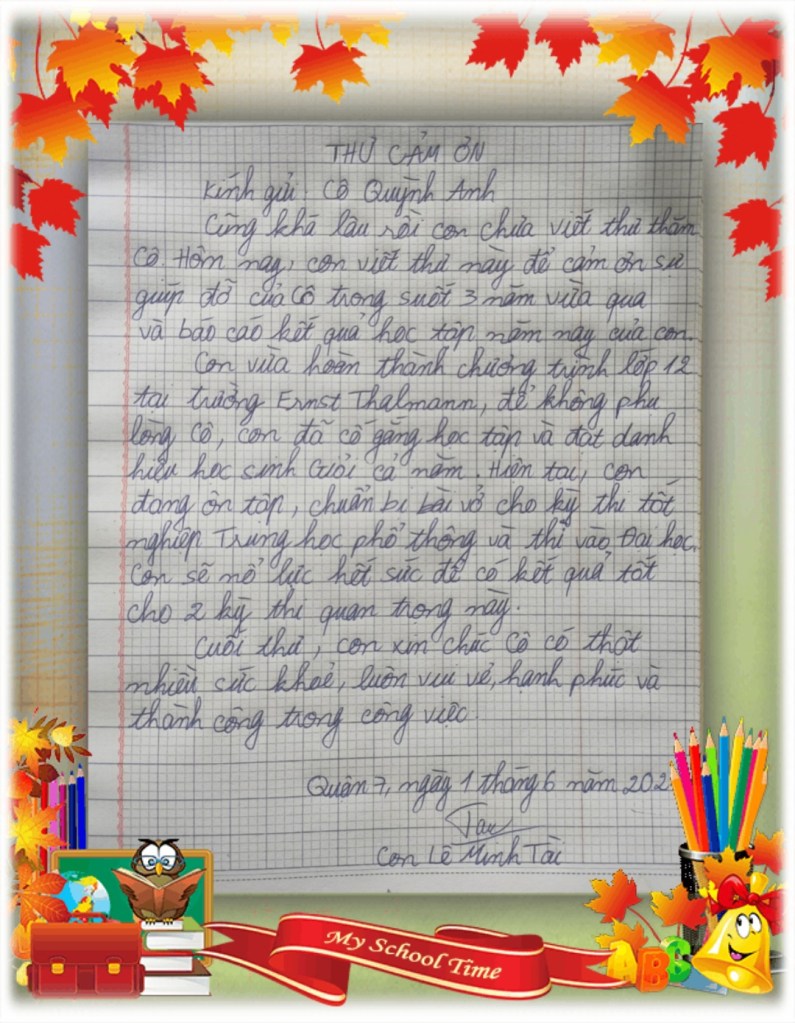 THƯ CẢM ƠN
Kính gửi: Cô Quỳnh Anh
Cũng khá lâu rồi con chưa viết thư thăm
Cô. Hôm nay, con viết thư này để cảm ơn sự
giúp đỡ của Cô trong suốt 3 năm vừa qua
và báo cáo kết quả học tập năm nay của con.
Con vừa hoàn thành chương trình lớp 12
tại trường Ernst Thalmann, để không phụ
lòng Cô, con đã cố gắng học tập và đạt danh
hiệu học sinh Giỏi cả năm. Hiện tại, con
đang ôn tập, chuẩn bị bài vở cho kỳ thi tốt
nghiệp Trung học phổ thông và thi vào Đại học.
Con sẽ nổ lực hết sức để có kết quả tốt
cho 2 kỳ thi quan trọng này.
Cuối thư, con xin chúc Cô có thật
nhiều sức khoẻ, luôn vui vẻ, hạnh phúc và
thành công trong công việc.
Quận 7, ngày 1 tháng 6 năm 202
Tài
Con Lê Minh Tài
My School Time
ABC